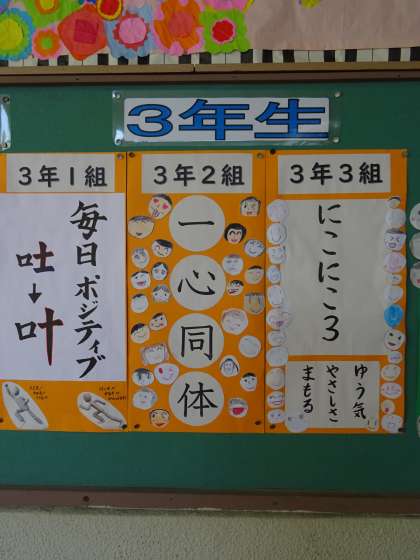 3年生
3年1組
毎日ポジティブ
吐→叶
3年2組
一心同体
3年3組
にこにこ3
ゆう気
やさしさ
まもる